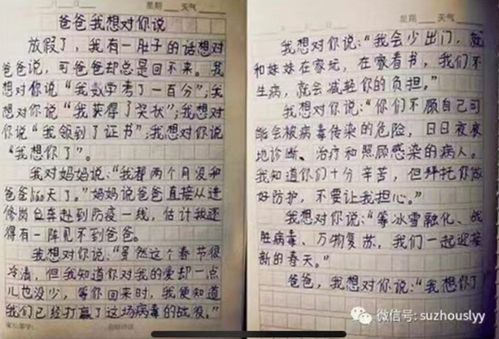 星期 天气
爸爸我想对你说
放假了，我有一肚子的话想对
爸爸说，可爸爸却总是回不来。我
想对你说“我数学考了一百分”；我
想对你说“我获得了奖状”；我想对
你说“我领到了证书”；我想对你说
“我想你了”。
我对妈妈说：“我都两个月没和
爸爸聊天了。”妈妈说爸爸直接从进
修岗自车赴到防疫一线，估计我还
得有一阵见不到爸爸。
我想对你说：“虽然这个春节很
冷清，但我知道你对我的爱却一点
儿也没少，等你回来时，我便知道
我们已经打赢了这场病毒的战役。”
星期 天气
我想对你说：“我会少出门，就
和妹妹在家玩，在家看书，我们不
生病，就会减轻你的负担。”
我想对你说：“你们不顾自己可
能会被病毒传染的危险，日日夜夜
地诊断、治疗和照顾感染的病人。
我知道你们十分辛苦，但拜托你做
好防护，不要让我担心。”
我想对你说：“等冰雪融化、战
胜病毒、万物复苏，我们一起迎接
新的春天。”
爸爸，我想对你说：“我想你了
微信号: suzhouslyy